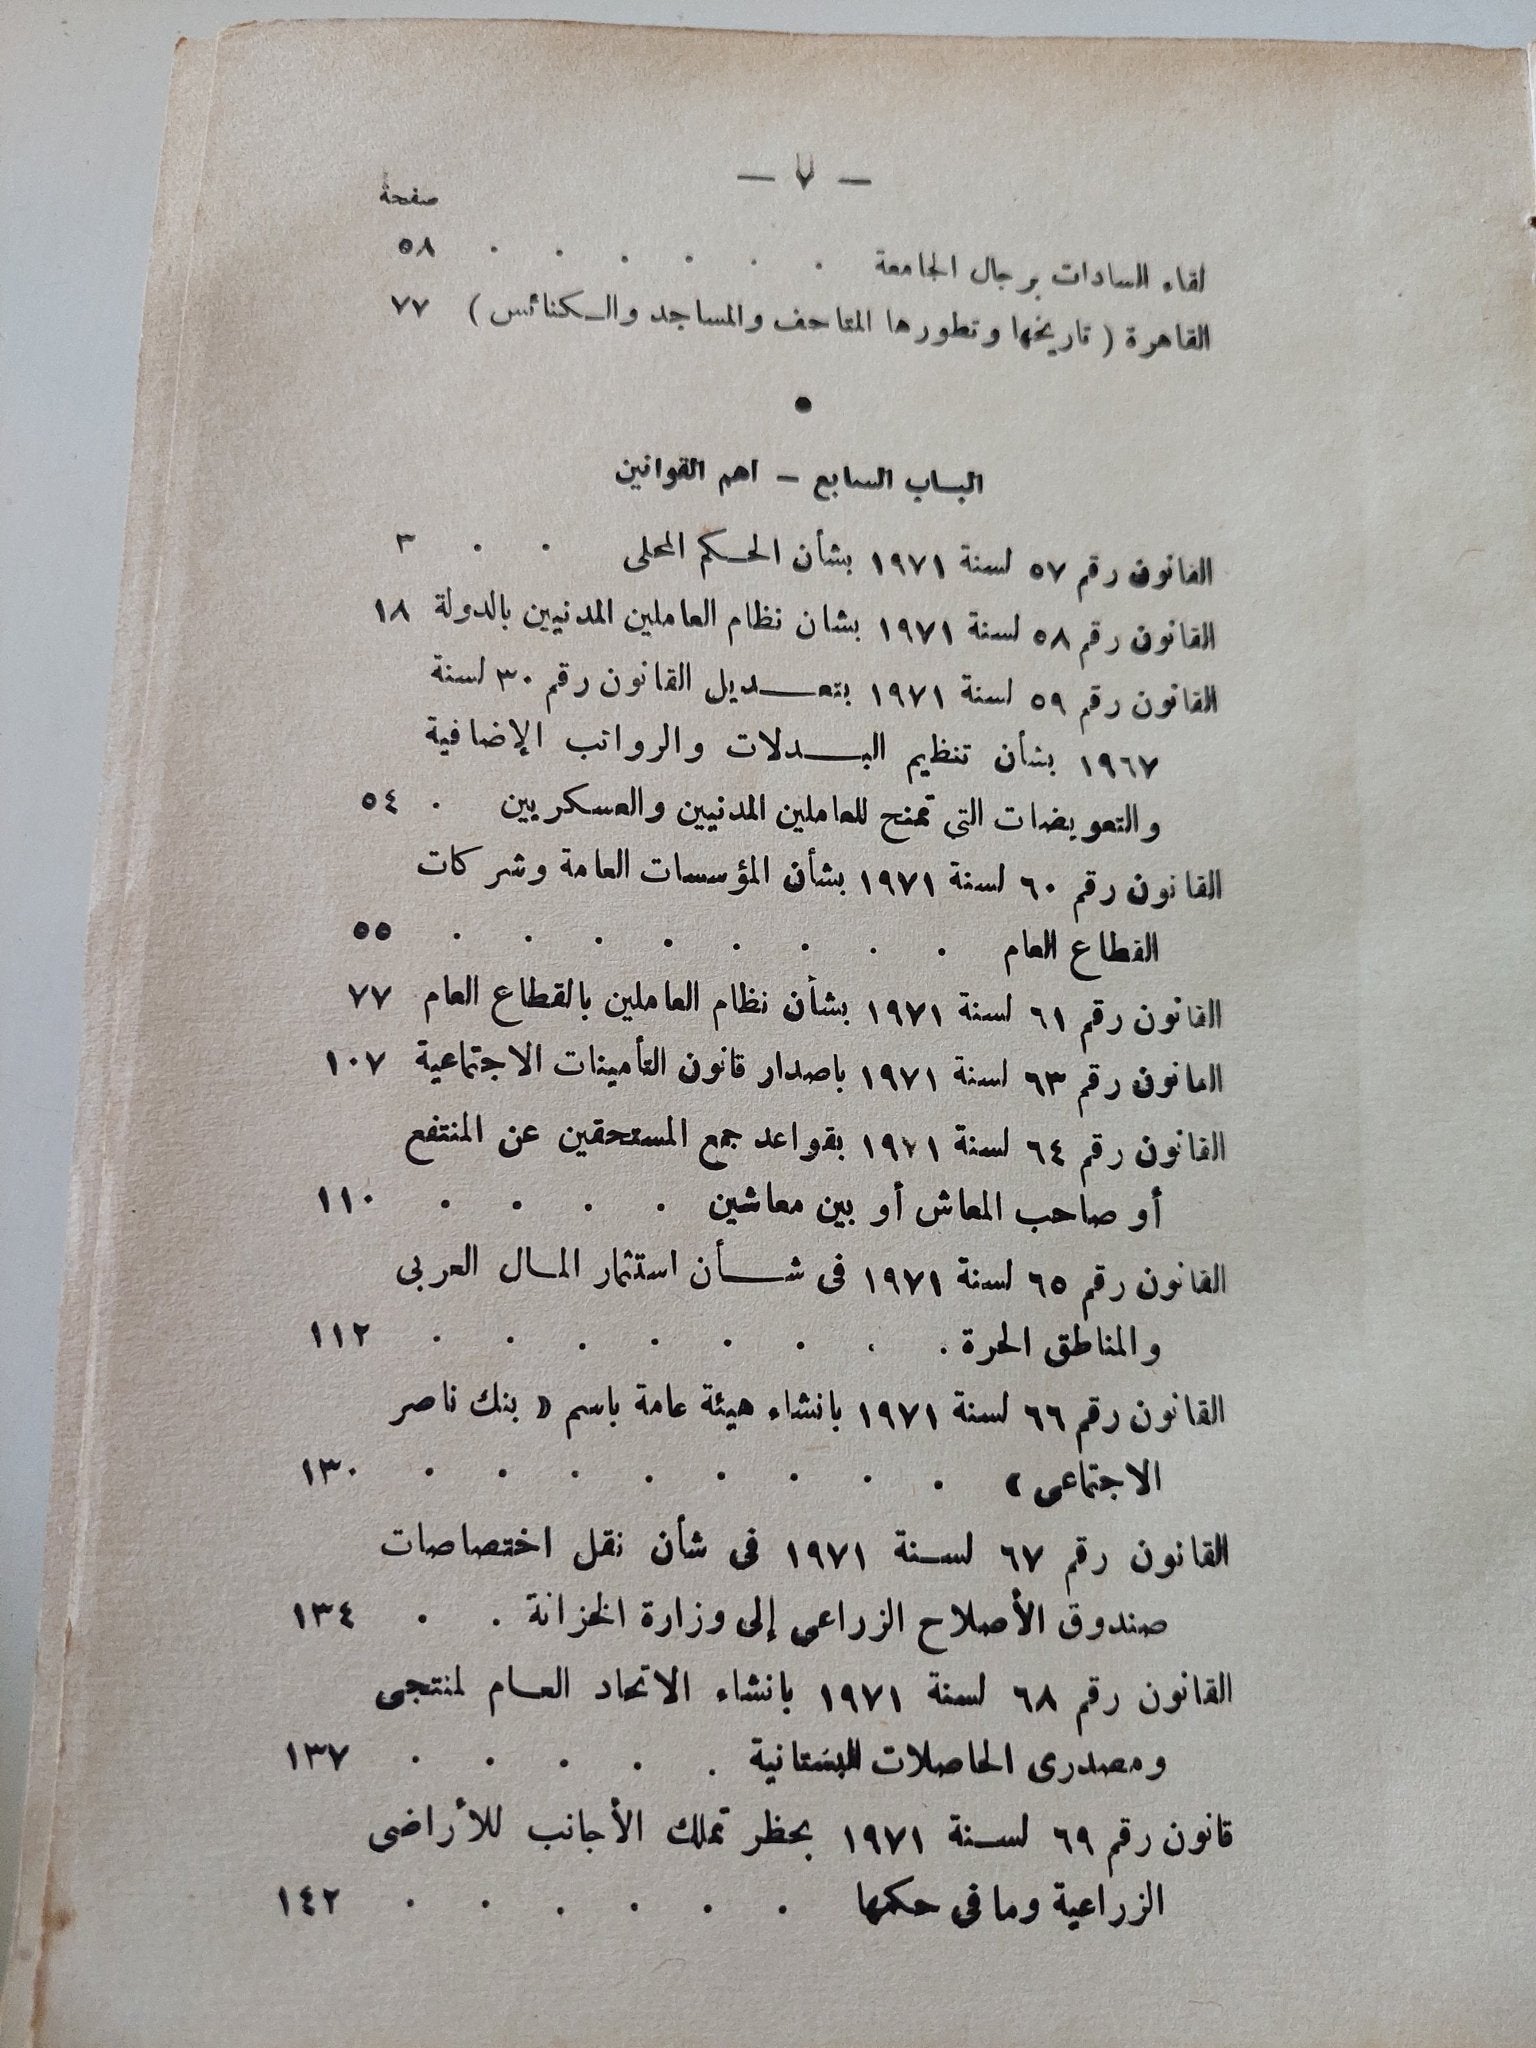 — ٧ —
صفحة
لقاء السادات برجال الجامعة . . . . . . ٥٨
القاهرة ( تاريخها وتطورها المتاحف والمساجد والكنائس ) ٧٧
●
الباب السابع — اهم القوانين
القانون رقم ٥٧ لسنة ١٩٧١ بشأن الحكم المحلى . . ٣
القانون رقم ٥٨ لسنة ١٩٧١ بشان نظام العاملين المدنيين بالدولة ١٨
القانون رقم ٥٩ لسنة ١٩٧١ بتعديل القانون رقم ٣٠ لسنة
١٩٦٧ بشأن تنظيم البدلات والرواتب الإضافية
والتعويضات التي تمنح للعاملين المدنيين والعسكريين . ٥٤
القانون رقم ٦٠ لسنة ١٩٧١ بشأن المؤسسات العامة وشركات
القطاع العام . . . . . . . . ٥٥
القانون رقم ٦١ لسنة ١٩٧١ بشأن نظام العاملين بالقطاع العام ٧٧
القانون رقم ٦٣ لسنة ١٩٧١ باصدار قانون التأمينات الاجتماعية ١٠٧
القانون رقم ٦٤ لسنة ١٩٧١ بقواعد جمع المستحقين عن المنتفع
أو صاحب المعاش أو بين معاشين . . . . ١١٠
القانون رقم ٦٥ لسنة ١٩٧١ فى شأن استثمار المال العربى
والمناطق الحرة . . . . . . . . ١١٢
القانون رقم ٦٦ لسنة ١٩٧١ بانشاء هيئة عامة باسم « بنك ناصر
الاجتماعى » . . . . . . . . ١٣٠
القانون رقم ٦٧ لسنة ١٩٧١ فى شأن نقل اختصاصات
صندوق الأصلاح الزراعى إلى وزارة الخزانة . . ١٣٤
القانون رقم ٦٨ لسنة ١٩٧١ بانشاء الاتحاد العام لمنتجى
ومصدرى الحاصلات البستانية . . . . . ١٣٧
قانون رقم ٦٩ لسنة ١٩٧١ بحظر تملك الأجانب للأراضى
الزراعية وما فى حكمها . . . . . . ١٤٢